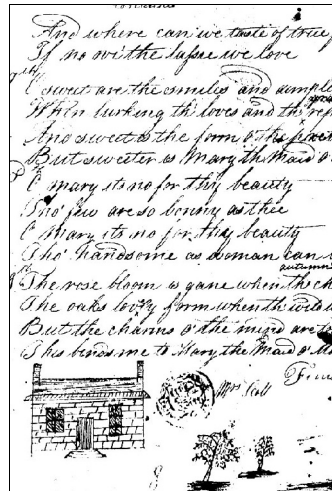 And where can we taste of true
If no wi the lasse we love
O sweet are the smiles and
When lurking th loves and the
And sweet is the form o' the
But sweeter is Mary the Maid o'
O mary its no for thy beauty
Tho' few are so bonny as thee
O Mary its no for thy beauty
Tho' handsome as woman can
autumn
The rose bloom is gane when the
The oaks lovely form when the
But the charms o' the mind are
This binds me to Mary the Maid o'
Mrs Scott